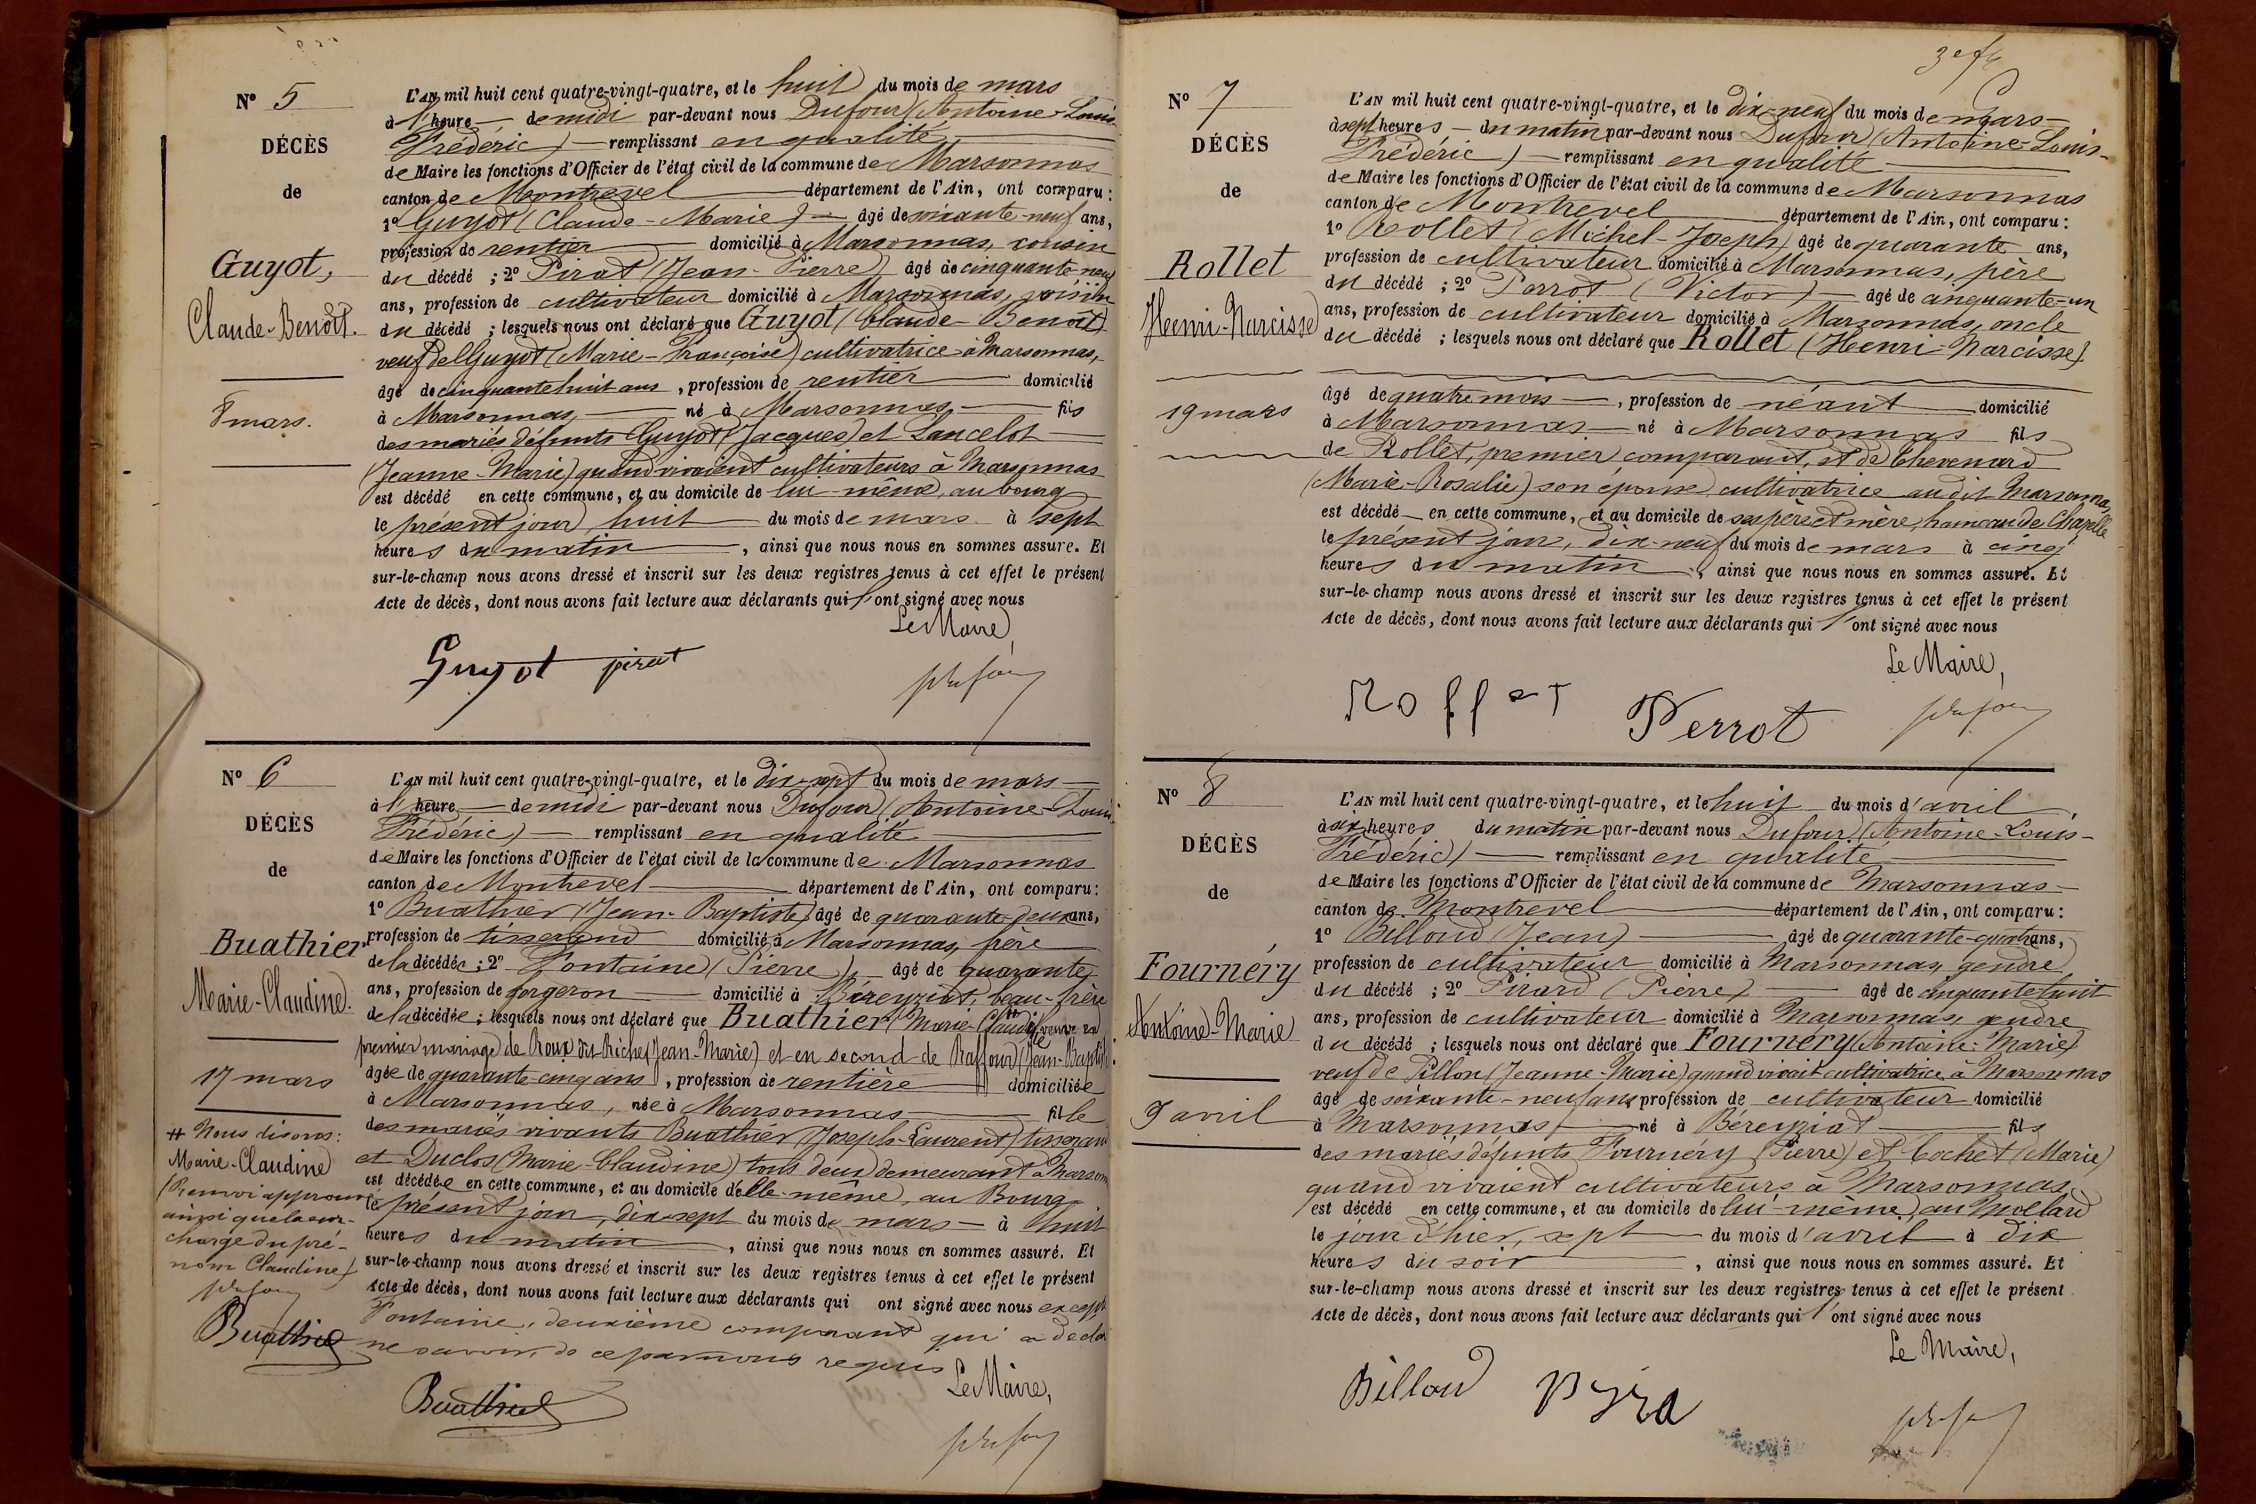 Nº 5
DÉCÈS
de
Guyot,
Claude-Benoît.
8 mars.
L'AN mil huit cent quatre-vingt-quatre, et le huit du mois de mars
à 1' heure — de midi par-devant nous Dufour (Antoine-Louis-
Frédéric) — remplissant en qualité
de Maire les fonctions d'Officier de l'état civil de la commune de Marsonnas
canton de Montrevel département de l'Ain, ont comparu :
1º Guyot (Claude-Marie) — âgé de soixante-neuf ans,
profession de rentier domicilié à Marsonnas, cousin
du décédé ; 2º Pirat (Jean-Pierre) âgé de cinquante-neuf
ans, profession de cultivateur domicilié à Marsonnas, voisin
du décédé ; lesquels nous ont déclaré que Guyot (Claude-Benoît)
veuf de Guyot (Marie-Françoise) cultivatrice à Marsonnas,
âgé de cinquante huit ans, profession de rentier domicilié
à Marsonnas, né à Marsonnas fils
des mariés défunts Guyot (Jacques) et Lancelot
(Jeanne-Marie) quand vivaient cultivateurs à Marsonnas
est décédé en cette commune, et au domicile de lui-même, au bourg
le présent jour, huit du mois de mars à sept
heures du matin, ainsi que nous nous en sommes assuré. Et
sur-le-champ nous avons dressé et inscrit sur les deux registres tenus à cet effet le présent
Acte de décès, dont nous avons fait lecture aux déclarants qui l'ont signé avec nous
Le Maire,
Guyot pirat
Dufour
Nº 6
DÉCÈS
de
Buathier
Marie-Claudine.
17 mars
# Nous disons :
Marie-Claudine
(Renvoi approuvé
ainsi que la sur-
charge du pré-
nom Claudine)
Dufour
Buathier
L'AN mil huit cent quatre-vingt-quatre, et le dix-sept du mois de mars
à 1' heure — de midi par-devant nous Dufour (Antoine-Louis-
Frédéric) — remplissant en qualité
de Maire les fonctions d'Officier de l'état civil de la commune de Marsonnas
canton de Montrevel département de l'Ain, ont comparu :
1º Buathier (Jean-Baptiste) âgé de quarante-deux ans,
profession de tisserand domicilié à Marsonnas, frère
de la décédée ; 2º Fontaine (Pierre), âgé de quarante
ans, profession de forgeron domicilié à Béreyziat, beau-frère
de la décédée ; lesquels nous ont déclaré que Buathier (Marie-Claudine) # veuve en
premier mariage de Roux dit Riche (Jean-Marie) et en second de Raffour (Jean-Baptiste).
âgée de quarante-cinq ans, profession de rentière domiciliée
à Marsonnas, née à Marsonnas fille
des mariés vivants Buathier (Joseph-Laurent) tisserand
et Duclos (Marie-Claudine) tous deux demeurant à Marson
est décédée en cette commune, et au domicile d'elle-même, au Bourg
le présent jour, dix-sept du mois de mars — à huit
heures du matin, ainsi que nous nous en sommes assuré. Et
sur-le-champ nous avons dressé et inscrit sur les deux registres tenus à cet effet le présent
Acte de décès, dont nous avons fait lecture aux déclarants qui ont signé avec nous excepté
Fontaine, deuxième comparant qui a déclaré
ne savoir, de ce par nous requis
Le Maire,
Buathier
Dufour
Nº 7
DÉCÈS
de
Rollet
Henri-Narcisse
19 mars
L'AN mil huit cent quatre-vingt-quatre, et le dix-neuf du mois de Mars
à sept heures — du matin par-devant nous Dufour (Antoine-Louis-
Frédéric) — remplissant en qualité
de Maire les fonctions d'Officier de l'état civil de la commune de Marsonnas
canton de Montrevel département de l'Ain, ont comparu :
1º Rollet (Michel-Joseph) âgé de quarante ans,
profession de cultivateur domicilié à Marsonnas, père
du décédé ; 2º Perrot (Victor) — âgé de cinquante-un
ans, profession de cultivateur domicilié à Marsonnas, oncle
du décédé ; lesquels nous ont déclaré que Rollet (Henri-Narcisse)
âgé de quatre mois —, profession de néant domicilié
à Marsonnas — né à Marsonnas fils
de Rollet, premier comparant, et de Chevenard
(Marie-Rosalie) son épouse cultivatrice au dit Marsonnas
est décédé — en cette commune, et au domicile de ses père et mère, hameau de Chazelle
le présent jour, dix-neuf du mois de mars à cinq
heures du matin, ainsi que nous nous en sommes assuré. Et
sur-le-champ nous avons dressé et inscrit sur les deux registres tenus à cet effet le présent
Acte de décès, dont nous avons fait lecture aux déclarants qui l'ont signé avec nous
Le Maire,
Rollet Perrot
Dufour
Nº 8
DÉCÈS
de
Fournéry
Antoine-Marie
8 avril
L'AN mil huit cent quatre-vingt-quatre, et le huit du mois d'avril
à six heures du matin par-devant nous Dufour (Antoine-Louis-
Frédéric) — remplissant en qualité
de Maire les fonctions d'Officier de l'état civil de la commune de Marsonnas
canton de Montrevel département de l'Ain, ont comparu :
1º Billoud (Jean) âgé de quarante-quatre ans,
profession de cultivateur domicilié à Marsonnas, gendre
du décédé ; 2º Pirard (Pierre) âgé de cinquante huit
ans, profession de cultivateur domicilié à Marsonnas, gendre
du décédé ; lesquels nous ont déclaré que Fournéry (Antoine-Marie)
veuf de Pillon (Jeanne-Marie) quand vivait cultivatrice à Marsonnas
âgé de soixante-neuf ans profession de cultivateur domicilié
à Marsonnas né à Béreyziat fils
des mariés défunts Fournéry (Pierre) et Cochet (Marie)
quand vivaient cultivateurs à Marsonnas
est décédé en cette commune, et au domicile de lui-même, au Mollard
le jour d'hier, sept du mois d'avril à dix
heures du soir, ainsi que nous nous en sommes assuré. Et
sur-le-champ nous avons dressé et inscrit sur les deux registres tenus à cet effet le présent
Acte de décès, dont nous avons fait lecture aux déclarants qui l'ont signé avec nous
Le Maire,
Billoud
Dufour